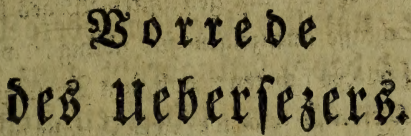 Vorrede
des Ueberſezers.